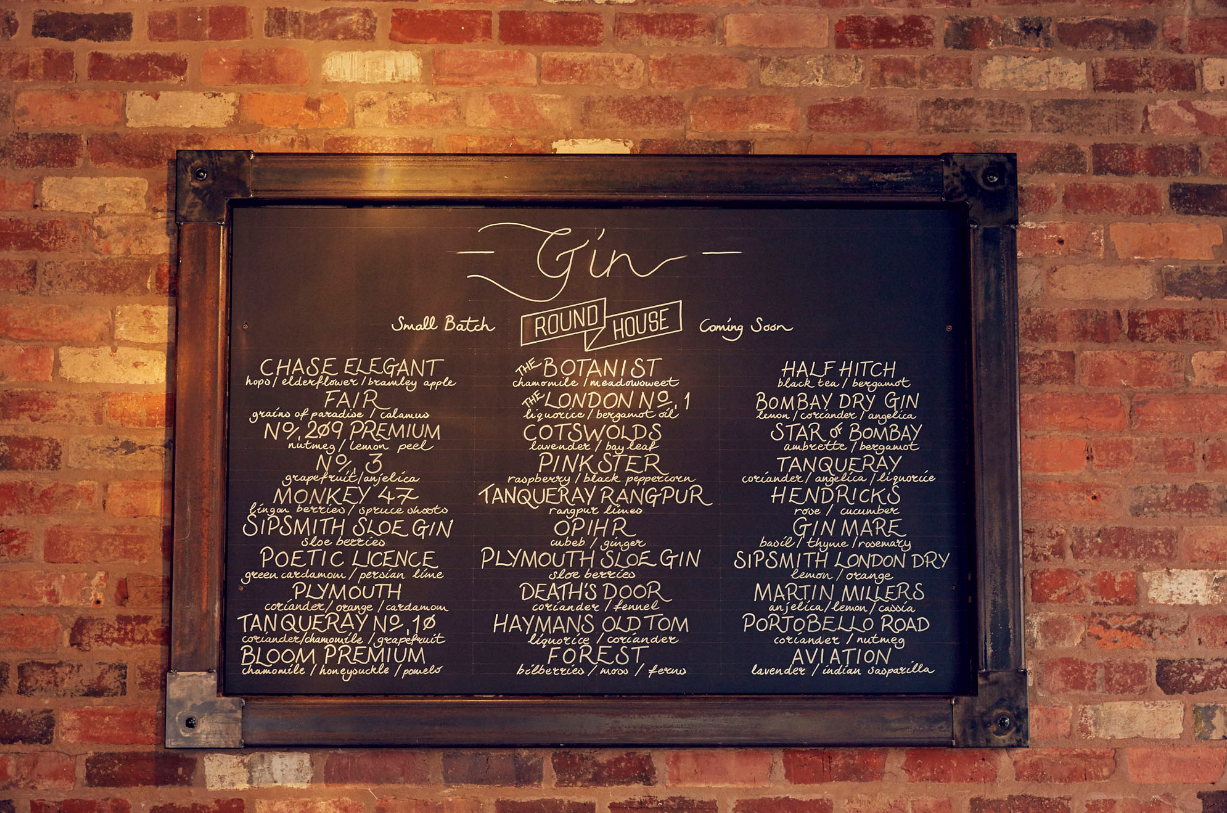 Gin
Small Batch ROUND HOUSE Coming Soon
CHASE ELEGANT
hops / elderflower / bramley apple
FAIR
grains of paradise / calamus
Nº. 209 PREMIUM
nutmeg / lemon peel
Nº. 3
grapefruit/anjelica
MONKEY 47
lingon berries / spruce shoots
SIPSMITH SLOE GIN
sloe berries
POETIC LICENCE
green cardamom / persian lime
PLYMOUTH
coriander/orange / cardamom
TANQUERAY Nº. 10
coriander/chamomile / grapefruit
BLOOM PREMIUM
chamomile / honeysuckle / pomelo
THE BOTANIST
chamomile / meadowsweet
THE LONDON Nº. 1
liquorice / bergamot oil
COTSWOLDS
lavender / bay leaf
PINKSTER
raspberry / black peppercorn
TANQUERAY RANGPUR
rangpur limes
OPIHR
cubeb / ginger
PLYMOUTH SLOE GIN
sloe berries
DEATH'S DOOR
coriander / fennel
HAYMANS OLD TOM
liquorice / coriander
FOREST
bilberries / moss / ferns
HALF HITCH
black tea / bergamot
BOMBAY DRY GIN
lemon / coriander / angelica
STAR of BOMBAY
ambrette / bergamot
TANQUERAY
coriander / angelica / liquorice
HENDRICKS
rose / cucumber
GIN MARE
basil / thyme / rosemary
SIPSMITH LONDON DRY
lemon / orange
MARTIN MILLERS
anjelica / lemon / cassia
PORTOBELLO ROAD
coriander / nutmeg
AVIATION
lavender / indian sasparilla